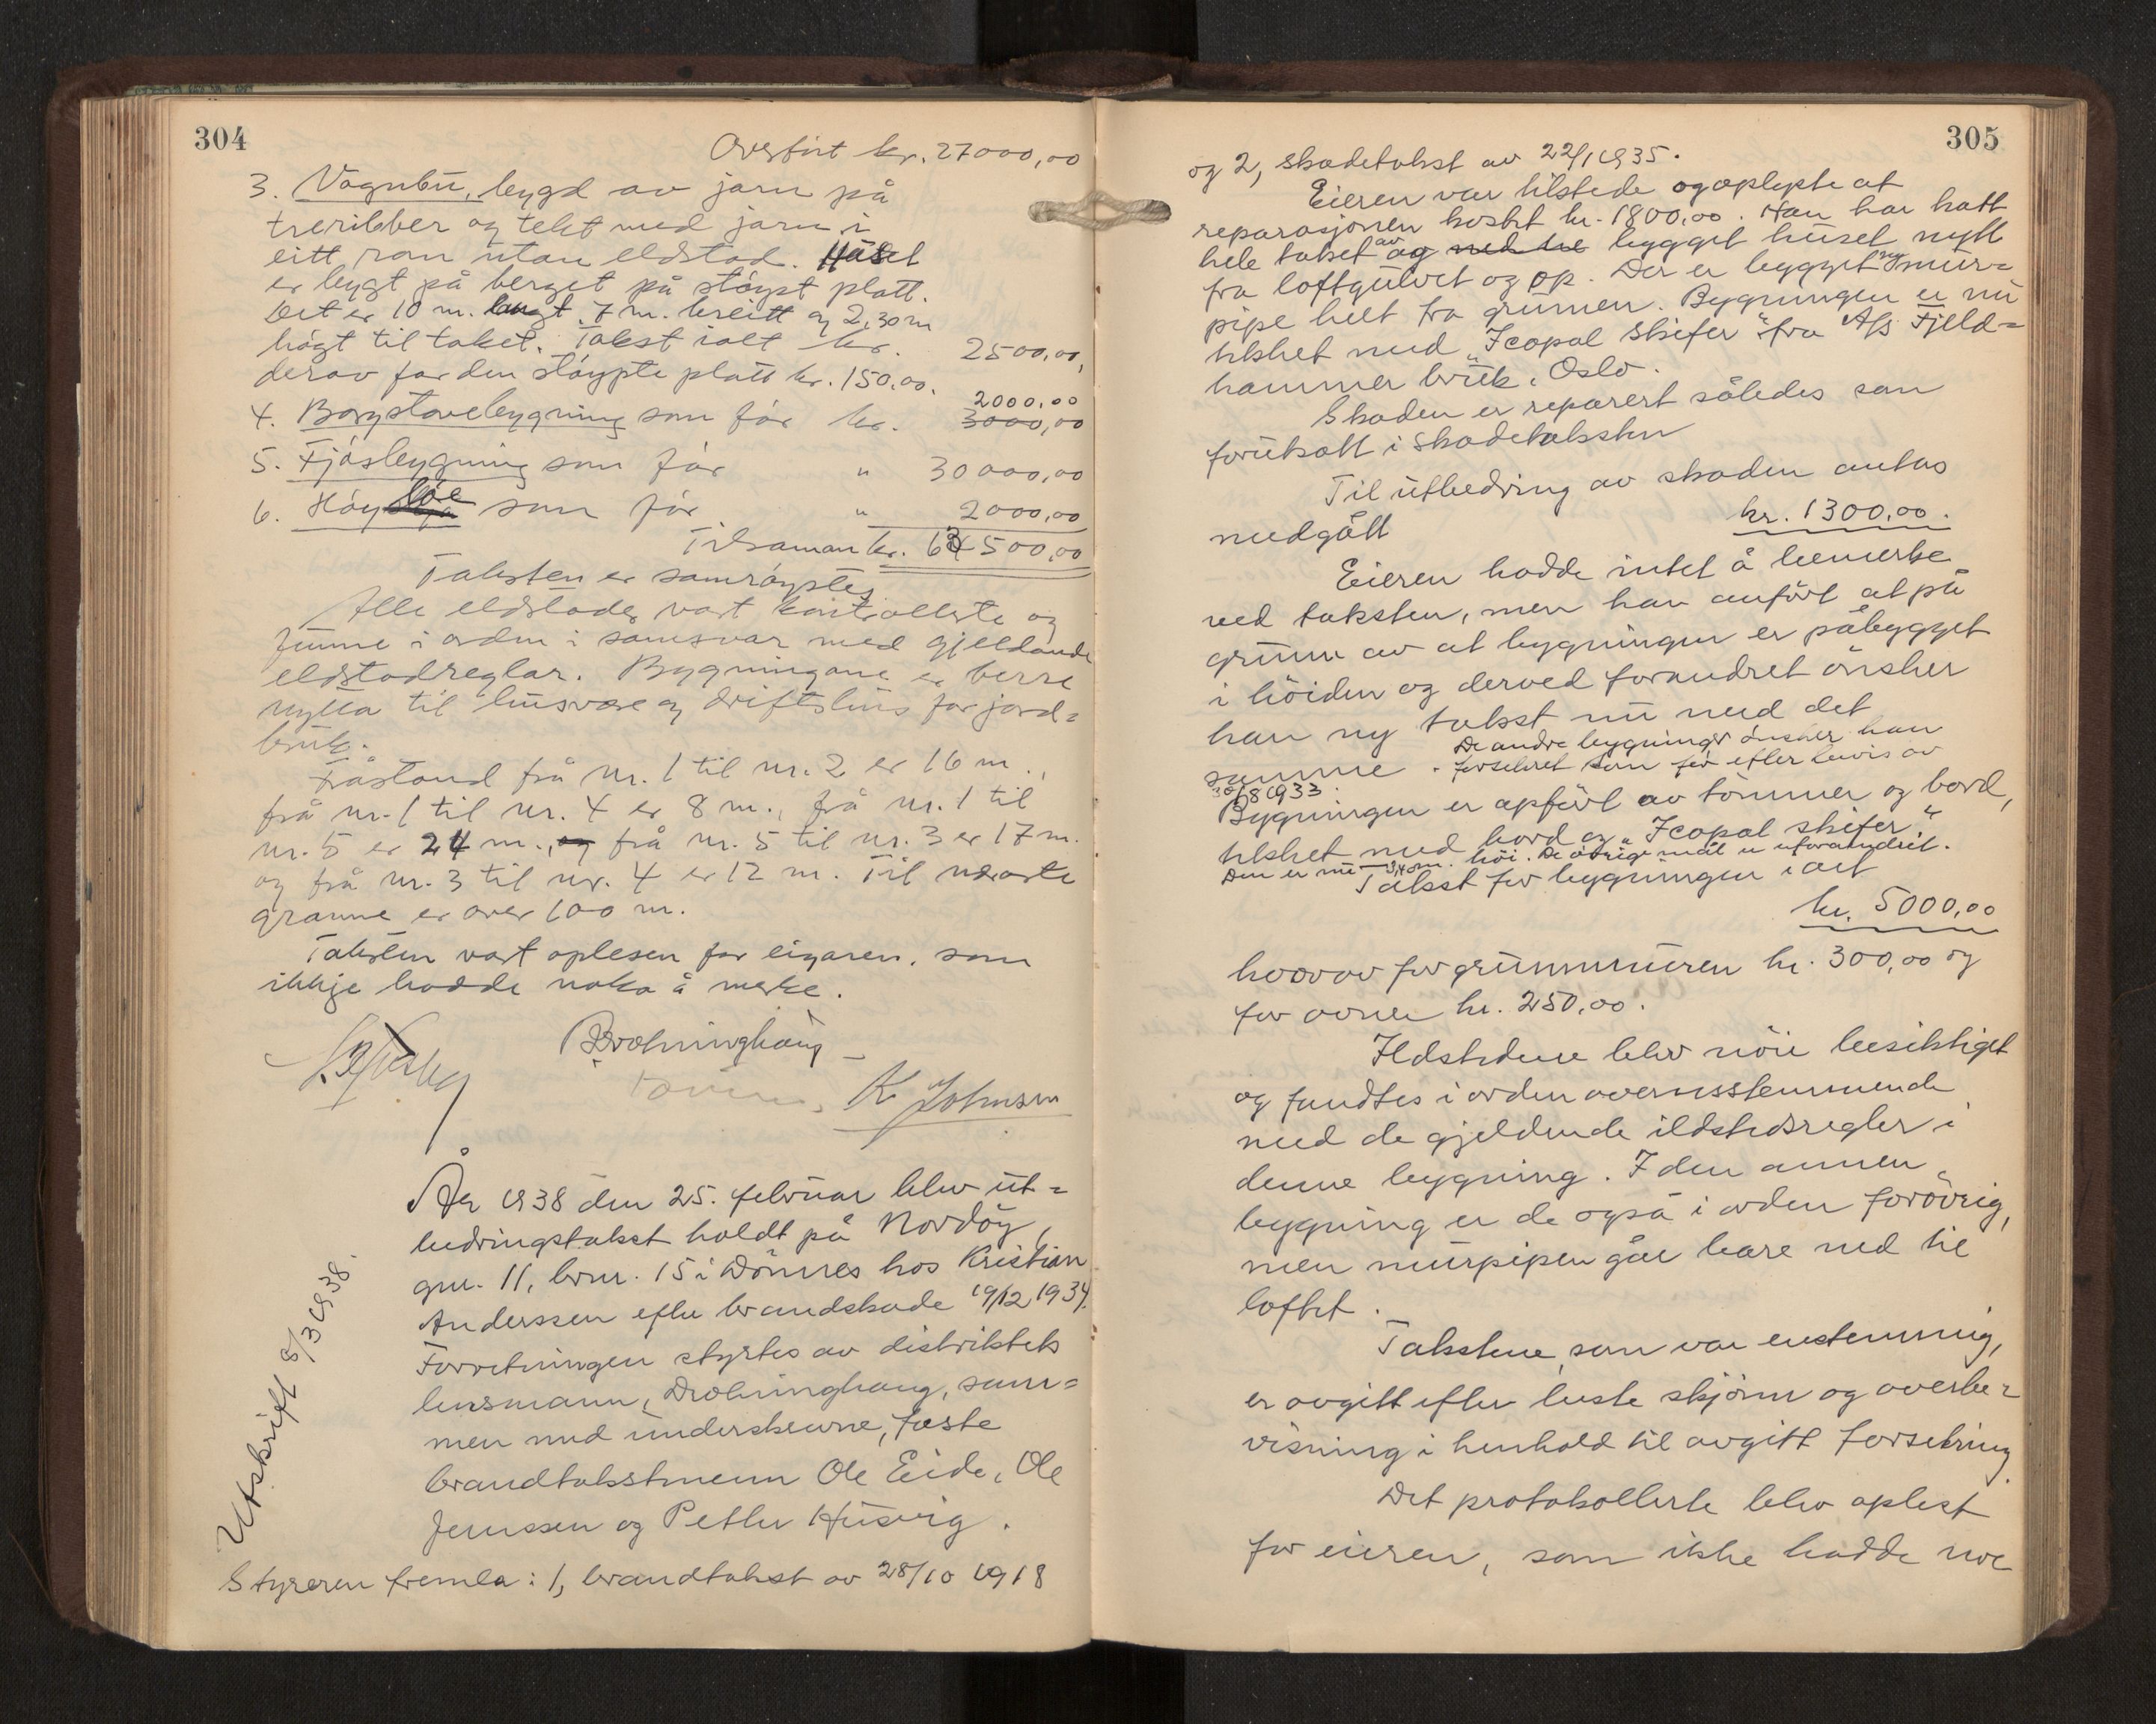 304
Overført kr. 27000,00
3. Vognbu, bygd av jarn på
treribber og tekt med jarn i
eitt rom utan eldstad. Huset
er bygt på berget på støypt platt.
Det er 10 m. langt, 7 m. breitt og 2,30 m
høgt til taket. Takst ialt kr. 2500,00,
derav for den støypte platt kr. 150,00.
4. Borgstovebygning som før kr. 3000,00 2000,00
5. Fjøsbygning som før " 30000,00
6. Høyløe som før " 2000,00
Tilsaman kr. 63500,00
Taksten er samrøystes
Alle eldstader vart kontrollerte og
funne i orden i samsvar med gjeldande
eldstadreglar. Bygningane er berre
nytta til husvære og driftshus for jord=
bruk.
Fråstand frå nr. 1 til nr. 2 er 16 m.,
frå nr. 1 til nr. 4 er 8 m., frå nr. 1 til
nr. 5 er 24 m., og frå nr. 5 til nr. 3 er 17 m.
og frå nr. 3 til nr. 4 er 12 m. Til næraste
granne er over 100 m.
Taksten vart oplesen for eigaren, som
ikkje hadde noko å merke.
Drølninghaug
K Johnsen
År 1938 den 25. februar blev ut=
bedringstakst holdt på Nordøy,
gnr. 11, brnr. 15 i Dønnes hos Kristian
Anderssen efter brandskade 19/12 1934.
Forretningen styrtes av distriktets
lensmann, Drølninghaug, sam=
men med underskrevne, faste
brandtakstmenn Ole Eide, Ole
Jenssen og Petter Husvig.
Styreren fremla: 1, brandtakst av 28/10 1918
Utskrift 8/3 1938.
305
og 2, skadetakst av 22/1 1935.
Eieren var tilstede og oplyste at
reparasjonen kostet kr. 1800,00. Han har tatt
hele taket av og ned til bygget huset nytt
fra loftgulvet og op. Der er bygget ny mur=
pipe helt fra grunnen. Bygningen er nu
tekket med "Icopal skifer" fra A/S Fjeld=
hammer bruk, Oslo.
Skaden er reparert således som
forutsatt i skadetaksten
Til utbedring av skaden antas
medgått kr. 1300,00.
Eieren hadde intet å bemerke
ved taksten, men han anført at på
grunn av at bygningen er påbygget
i høiden og derved forandret ønsker
han ny takst nu med det
samme. De andre bygninger ønsker han
forsikret som før efter bevis av
30/8 1933.
Bygningen er opført av tømmer og bord,
tekket med bord og "Icopal skifer."
Den er nu m. høi. De øvrige mål er uforandret.
Takst for bygningen i alt
kr. 5000,00
hvorav for grunnmuren kr. 300,00 og
for ovner kr. 250,00.
Ildstedene blev nøie besiktiget
og fandtes i orden overensstemmende
med de gjeldende ildstedsregler i
denne bygning. I den annen
bygning er de også i orden forøvrig,
men murpipen går bare ned til
loftet.
Takstene, som var enstemmig,
er avgitt efter beste skjønn og overbe=
visning i henhold til avgitt forsikring
Det protokollerte blev oplest
for eieren, som ikke hadde noe